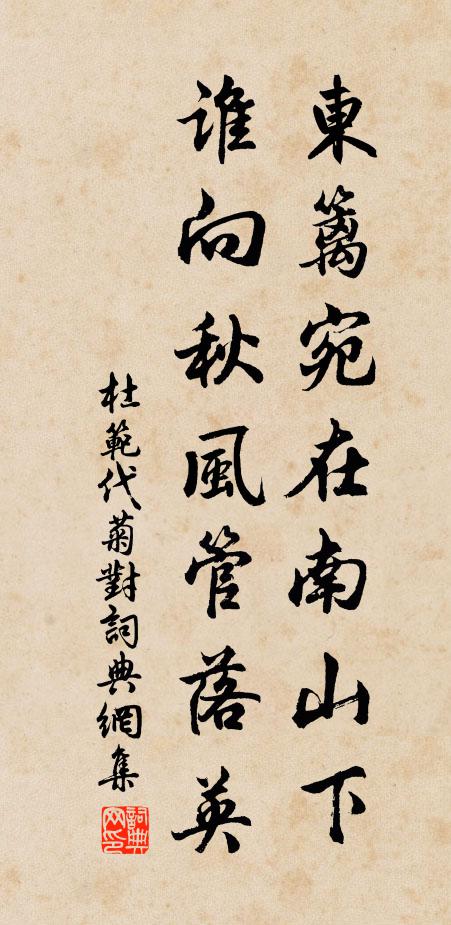 東籬宛在南山下
誰向秋風管落英
杜範代菊對詞典網集
詞典网印